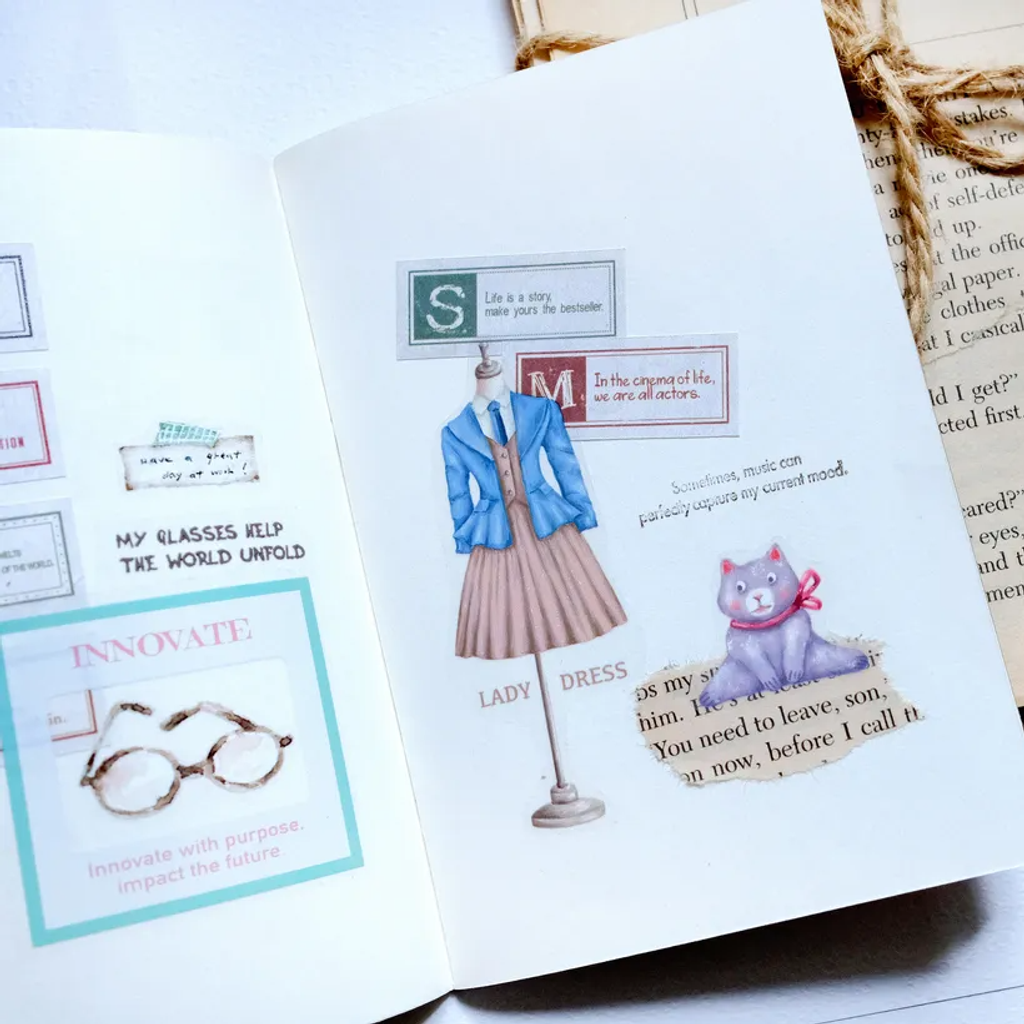 TION
OF THE WORLD.
Have a great
day at work!
MY GLASSES HELP
THE WORLD UNFOLD
INNOVATE
in.
Innovate with purpose.
impact the future
S
Life is a story,
make yours the bestseller.
M
In the cinema of life,
we are all actors.
Sometimes, music can
perfectly capture my current mood!
LADY DRESS
os my
him. He's at least
You need to leave, son,
on now, before I call
stakes.
you're
movie
of self-defe
up.
at the offic
gal paper.
clothes
at I casical
ld I get?"
cted first.
cared?"
eyes,
and
men